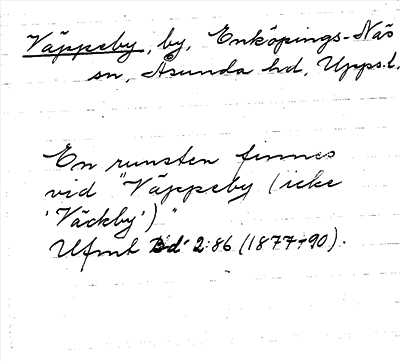 Väppeby, by, Enköpings-Näs
sn, Åsunda hd, Upps.l.
En runsten finnes
vid "Väppeby (icke
'Väckby')"
Ufmt Bd 2:86 (1877-90).